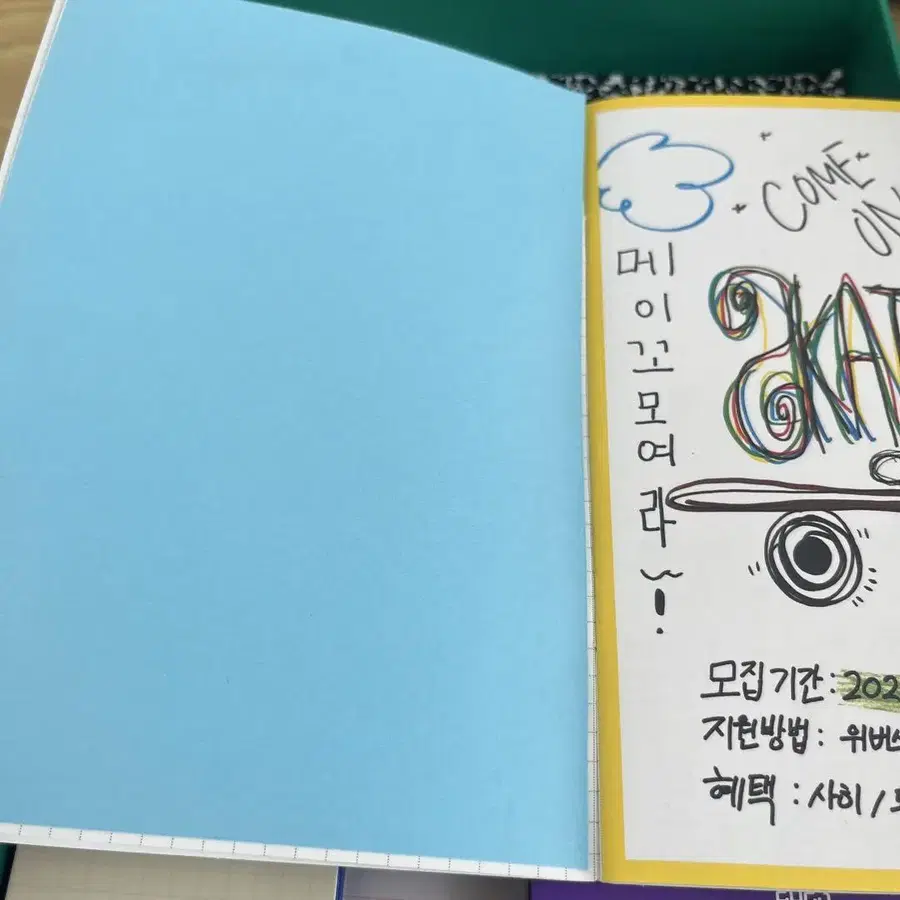 COME
ON
메이꼬모여라~!
SKAT
모집기간: 202
지원방법: 위버스
혜택: 사히 /